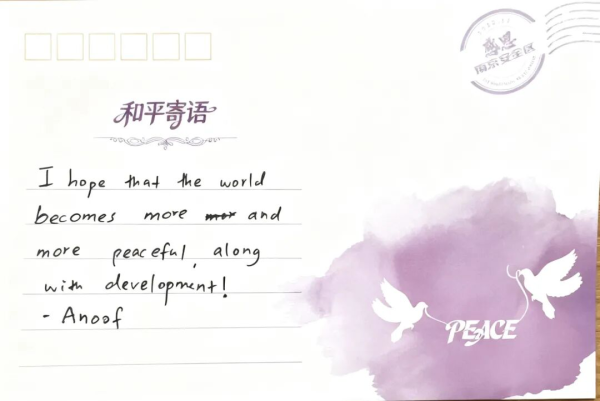 感恩
南京安全区
和平寄语
I hope that the world
becomes more and
more peaceful, along
with development!
- Anoof
PEACE